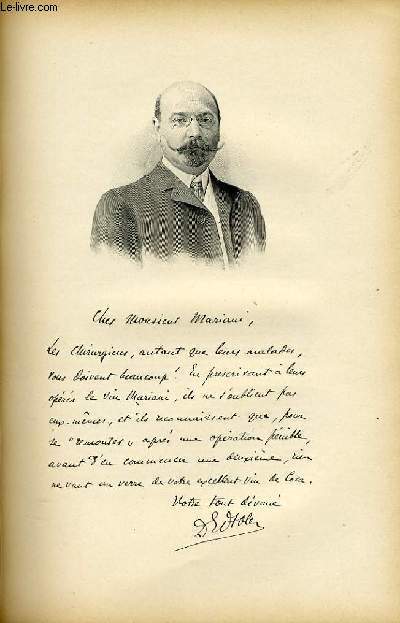 Le-livre.com
Cher Monsieur Mariani,
Les chirurgiens, autant que leurs malades,
vous doivent beaucoup! En prescrivant à leurs
opérés le vin Mariani, ils ne s'oublient pas
eux-mêmes, et ils reconnaissent que, pour
se "remonter" après une opération pénible,
avant d'en commencer une deuxième, rien
ne vaut un verre de votre excellent vin de Coca.
Votre tout dévoué